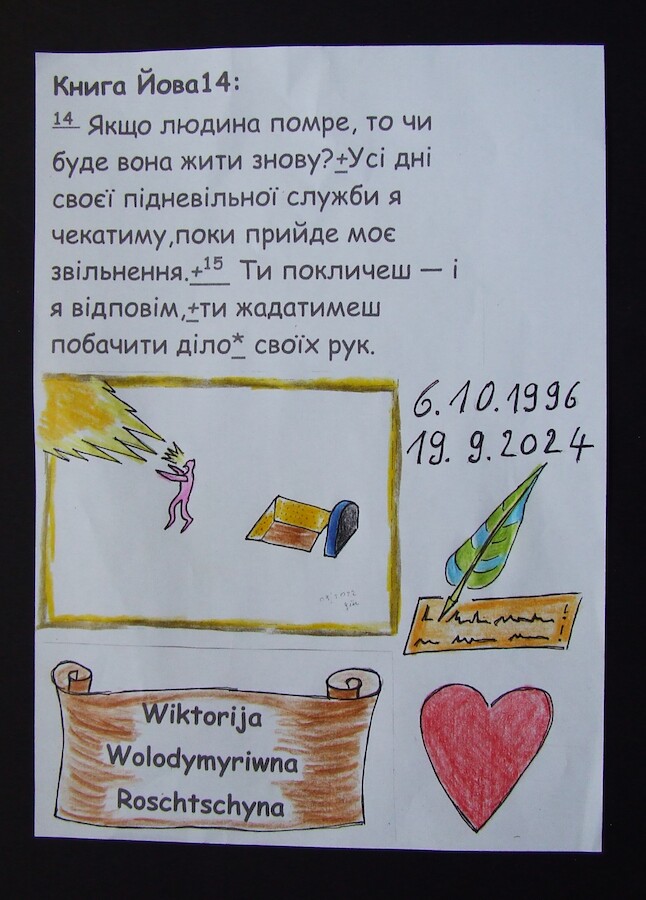 Книга Йова14:
14 Якщо людина помре, то чи
буде вона жити знову?+Усі дні
своєї підневільної служби я
чекатиму,поки прийде моє
звільнення.+15 Ти покличеш — і
я відповім,+ти жадатимеш
побачити діло* своїх рук.
6.10.1996
19.9.2024
Wiktorija
Wolodymyriwna
Roschtschyna